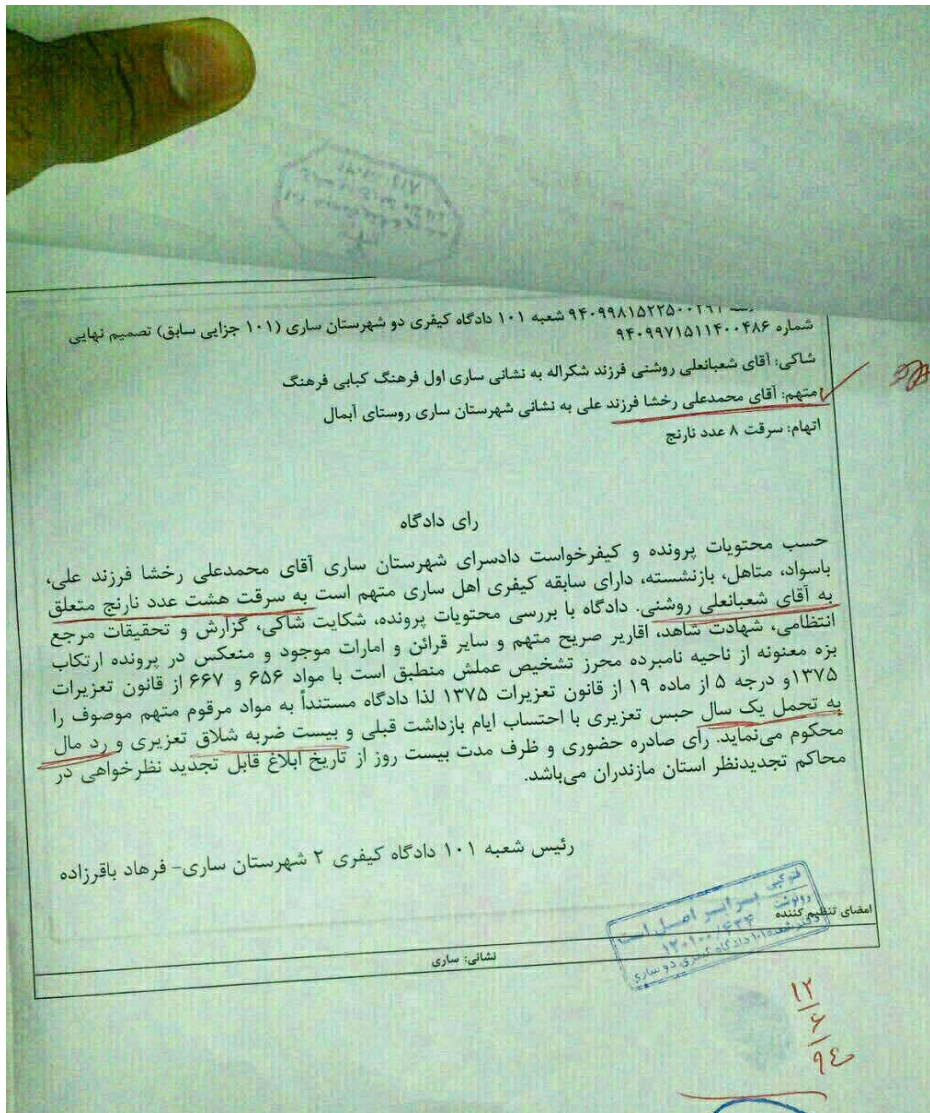 ۹۴۰۹۹۸۱۵۲۲۵۰۰۲۹۱ شعبه ۱۰۱ دادگاه کیفری دو شهرستان ساری (۱۰۱ جزایی سابق) تصمیم نهایی
شماره ۹۴۰۹۹۷۱۵۱۱۴۰۰۴۸۶
شاکی: آقای شعبانعلی روشنی فرزند شکراله به نشانی ساری اول فرهنگ کبابی فرهنگ
متهم: آقای محمدعلی رخشا فرزند علی به نشانی شهرستان ساری روستای آبمال
اتهام: سرقت ۸ عدد نارنج
رای دادگاه
حسب محتویات پرونده و کیفرخواست دادسرای شهرستان ساری آقای محمدعلی رخشا فرزند علی،
باسواد، متاهل، بازنشسته، دارای سابقه کیفری اهل ساری متهم است به سرقت هشت عدد نارنج متعلق
به آقای شعبانعلی روشنی. دادگاه با بررسی محتویات پرونده، شکایت شاکی، گزارش و تحقیقات مرجع
انتظامی، شهادت شاهد، اقاریر صریح متهم و سایر قرائن و امارات موجود و منعکس در پرونده ارتکاب
بزه معنونه از ناحیه نامبرده محرز تشخیص عملش منطبق است با مواد ۶۵۶ و ۶۶۷ از قانون تعزیرات
۱۳۷۵و درجه ۵ از ماده ۱۹ از قانون تعزیرات ۱۳۷۵ لذا دادگاه مستنداً به مواد مرقوم متهم موصوف را
به تحمل یک سال حبس تعزیری با احتساب ایام بازداشت قبلی و بیست ضربه شلاق تعزیری و رد مال
محکوم می‌نماید. رای صادره حضوری و ظرف مدت بیست روز از تاریخ ابلاغ قابل تجدید نظرخواهی در
محاکم تجدیدنظر استان مازندران می‌باشد.
رئیس شعبه ۱۰۱ دادگاه کیفری ۲ شهرستان ساری- فرهاد باقرزاده
فتوکپی
رونوشت برابر اصل است
دفتر شعبه ۱۰۱ دادگاه کیفری دو ساری
امضای تنظیم کننده
نشانی: ساری
۱۲/۶/۹۴